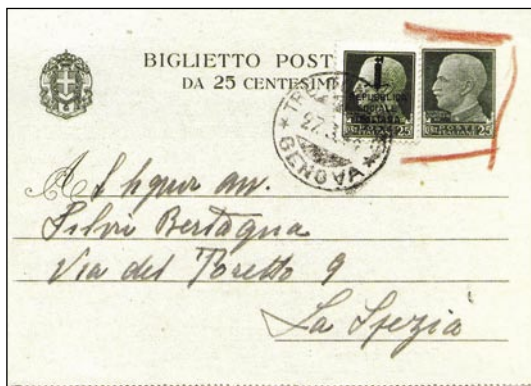 BIGLIETTO POST
DA 25 CENTESIMI
REPUBBLICA
SOCIALE
ITALIANA
25
25
27.3
GENOVA
Al Signor
Silvio Bertagna
Via del Toretto 9
La Spezia